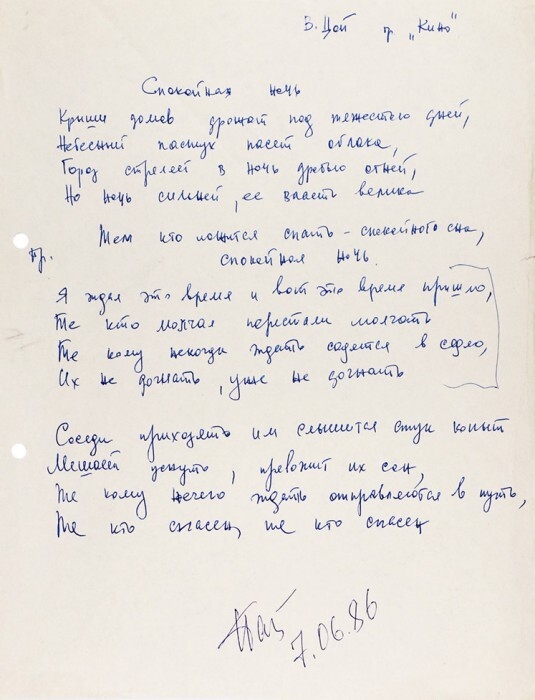 В. Цой гр „Кино"
Спокойная ночь
Крыши домов дрожат под тяжестью дней,
Небесный пастух пасет облака,
Город стреляет в ночь дробью огней,
Но ночь сильней, ее власть велика
Тем кто ложится спать – спокойного сна,
пр. спокойная ночь.
Я ждал это время и вот это время пришло,
Те кто молчал перестали молчать
Те кому некогда ждать садятся в седло,
Их не догнать, уже не догнать
Соседи приходят им слышится стук копыт
Мешает уснуть, тревожит их сон,
Те кому нечего ждать отправляются в путь,
Те кто спасен, те кто спасен
7.06.86